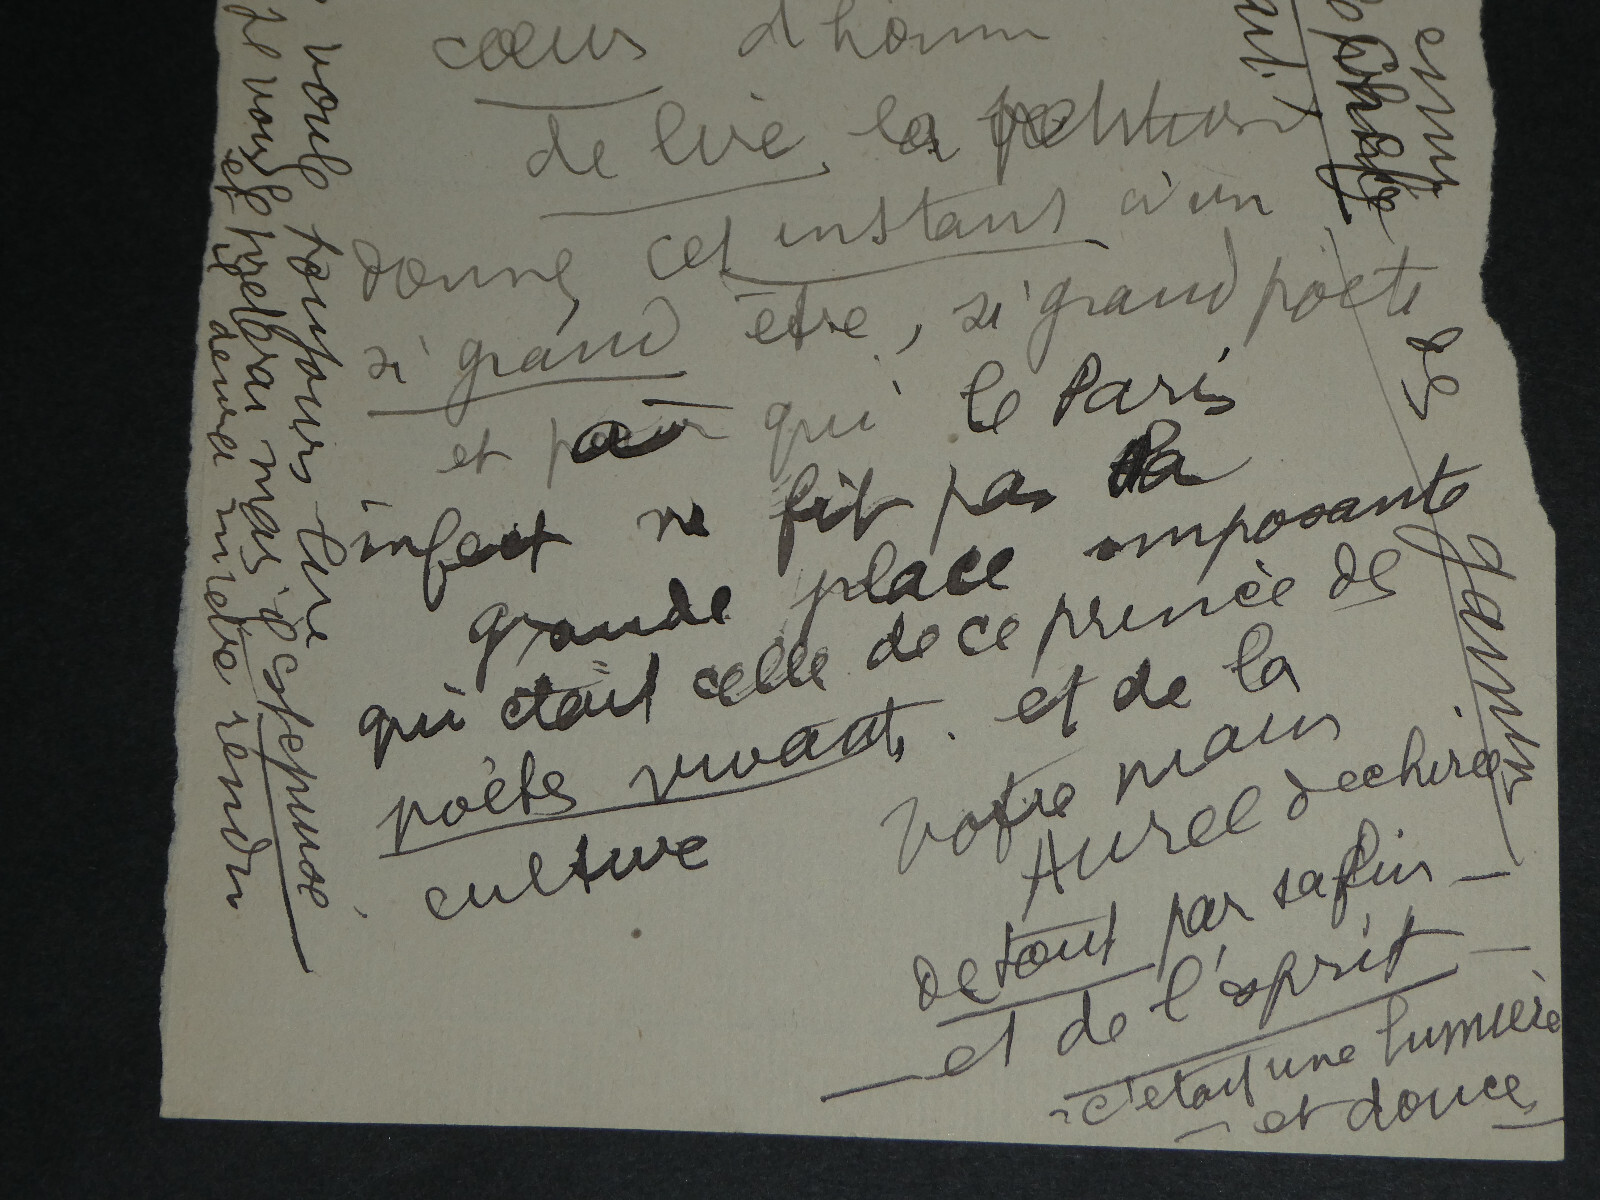 cœur d'homme
de lire, la
donné, cet instant à un
si grand être, si grand poète
et à qui le Paris
infect ne fit pas la
grande place imposante
qui était celle de ce prince des
poètes vivants. et de la
culture
votre main
Aurel dechirée
de tout par sa fin
et de l'esprit
c'etait une lumière
et douce
voulu toujours lire
Je vous le preterai mais il est epuisé
et il devra m'etre rendu
des